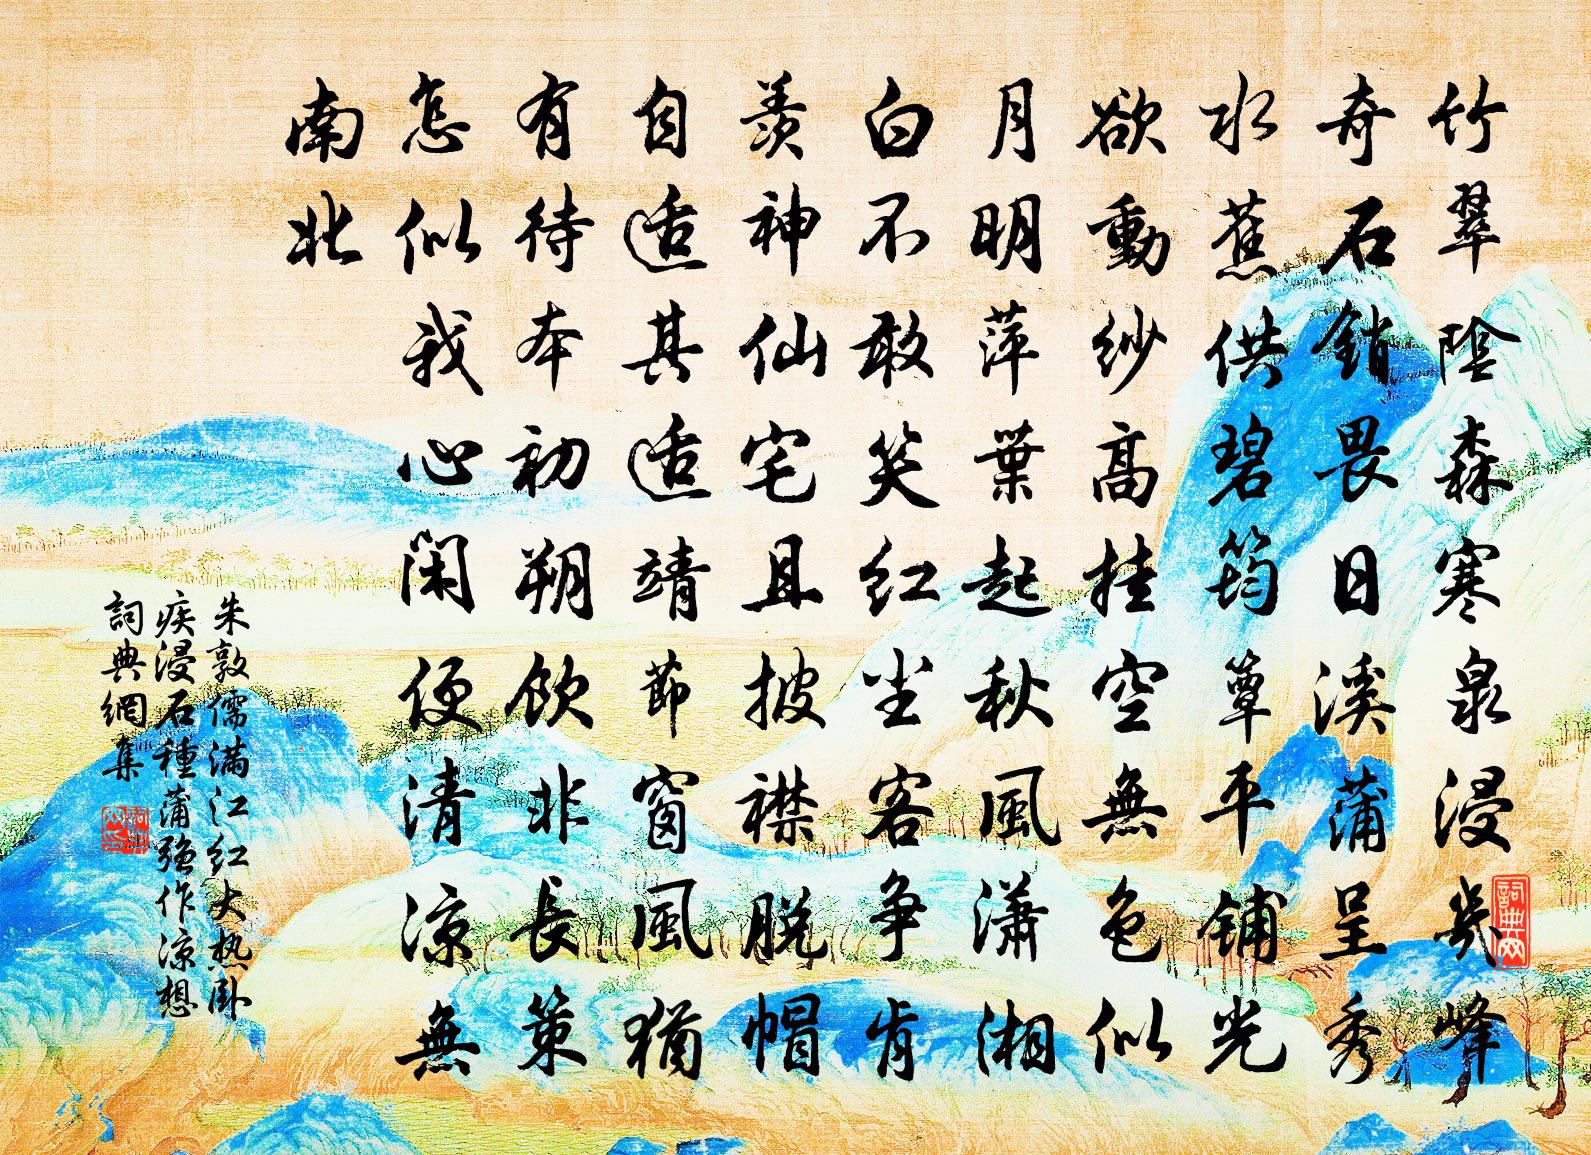 竹翠陰森寒泉浸幾峰
奇石銷畏日溪蒲呈秀
水蕉供碧筠簟平鋪光
欲動紗高挂空無色似
月明萍葉起秋風瀟湘
白不敢笑紅尘客争肯
羨神仙宅且披襟脱帽
自适其适靖節窗風猶
有待本初朔飲非長策
怎似我心闲便清涼無
南北
朱敦儒滿江紅大热卧
疾浸石種蒲强作涼想
詞典網集
詞典网